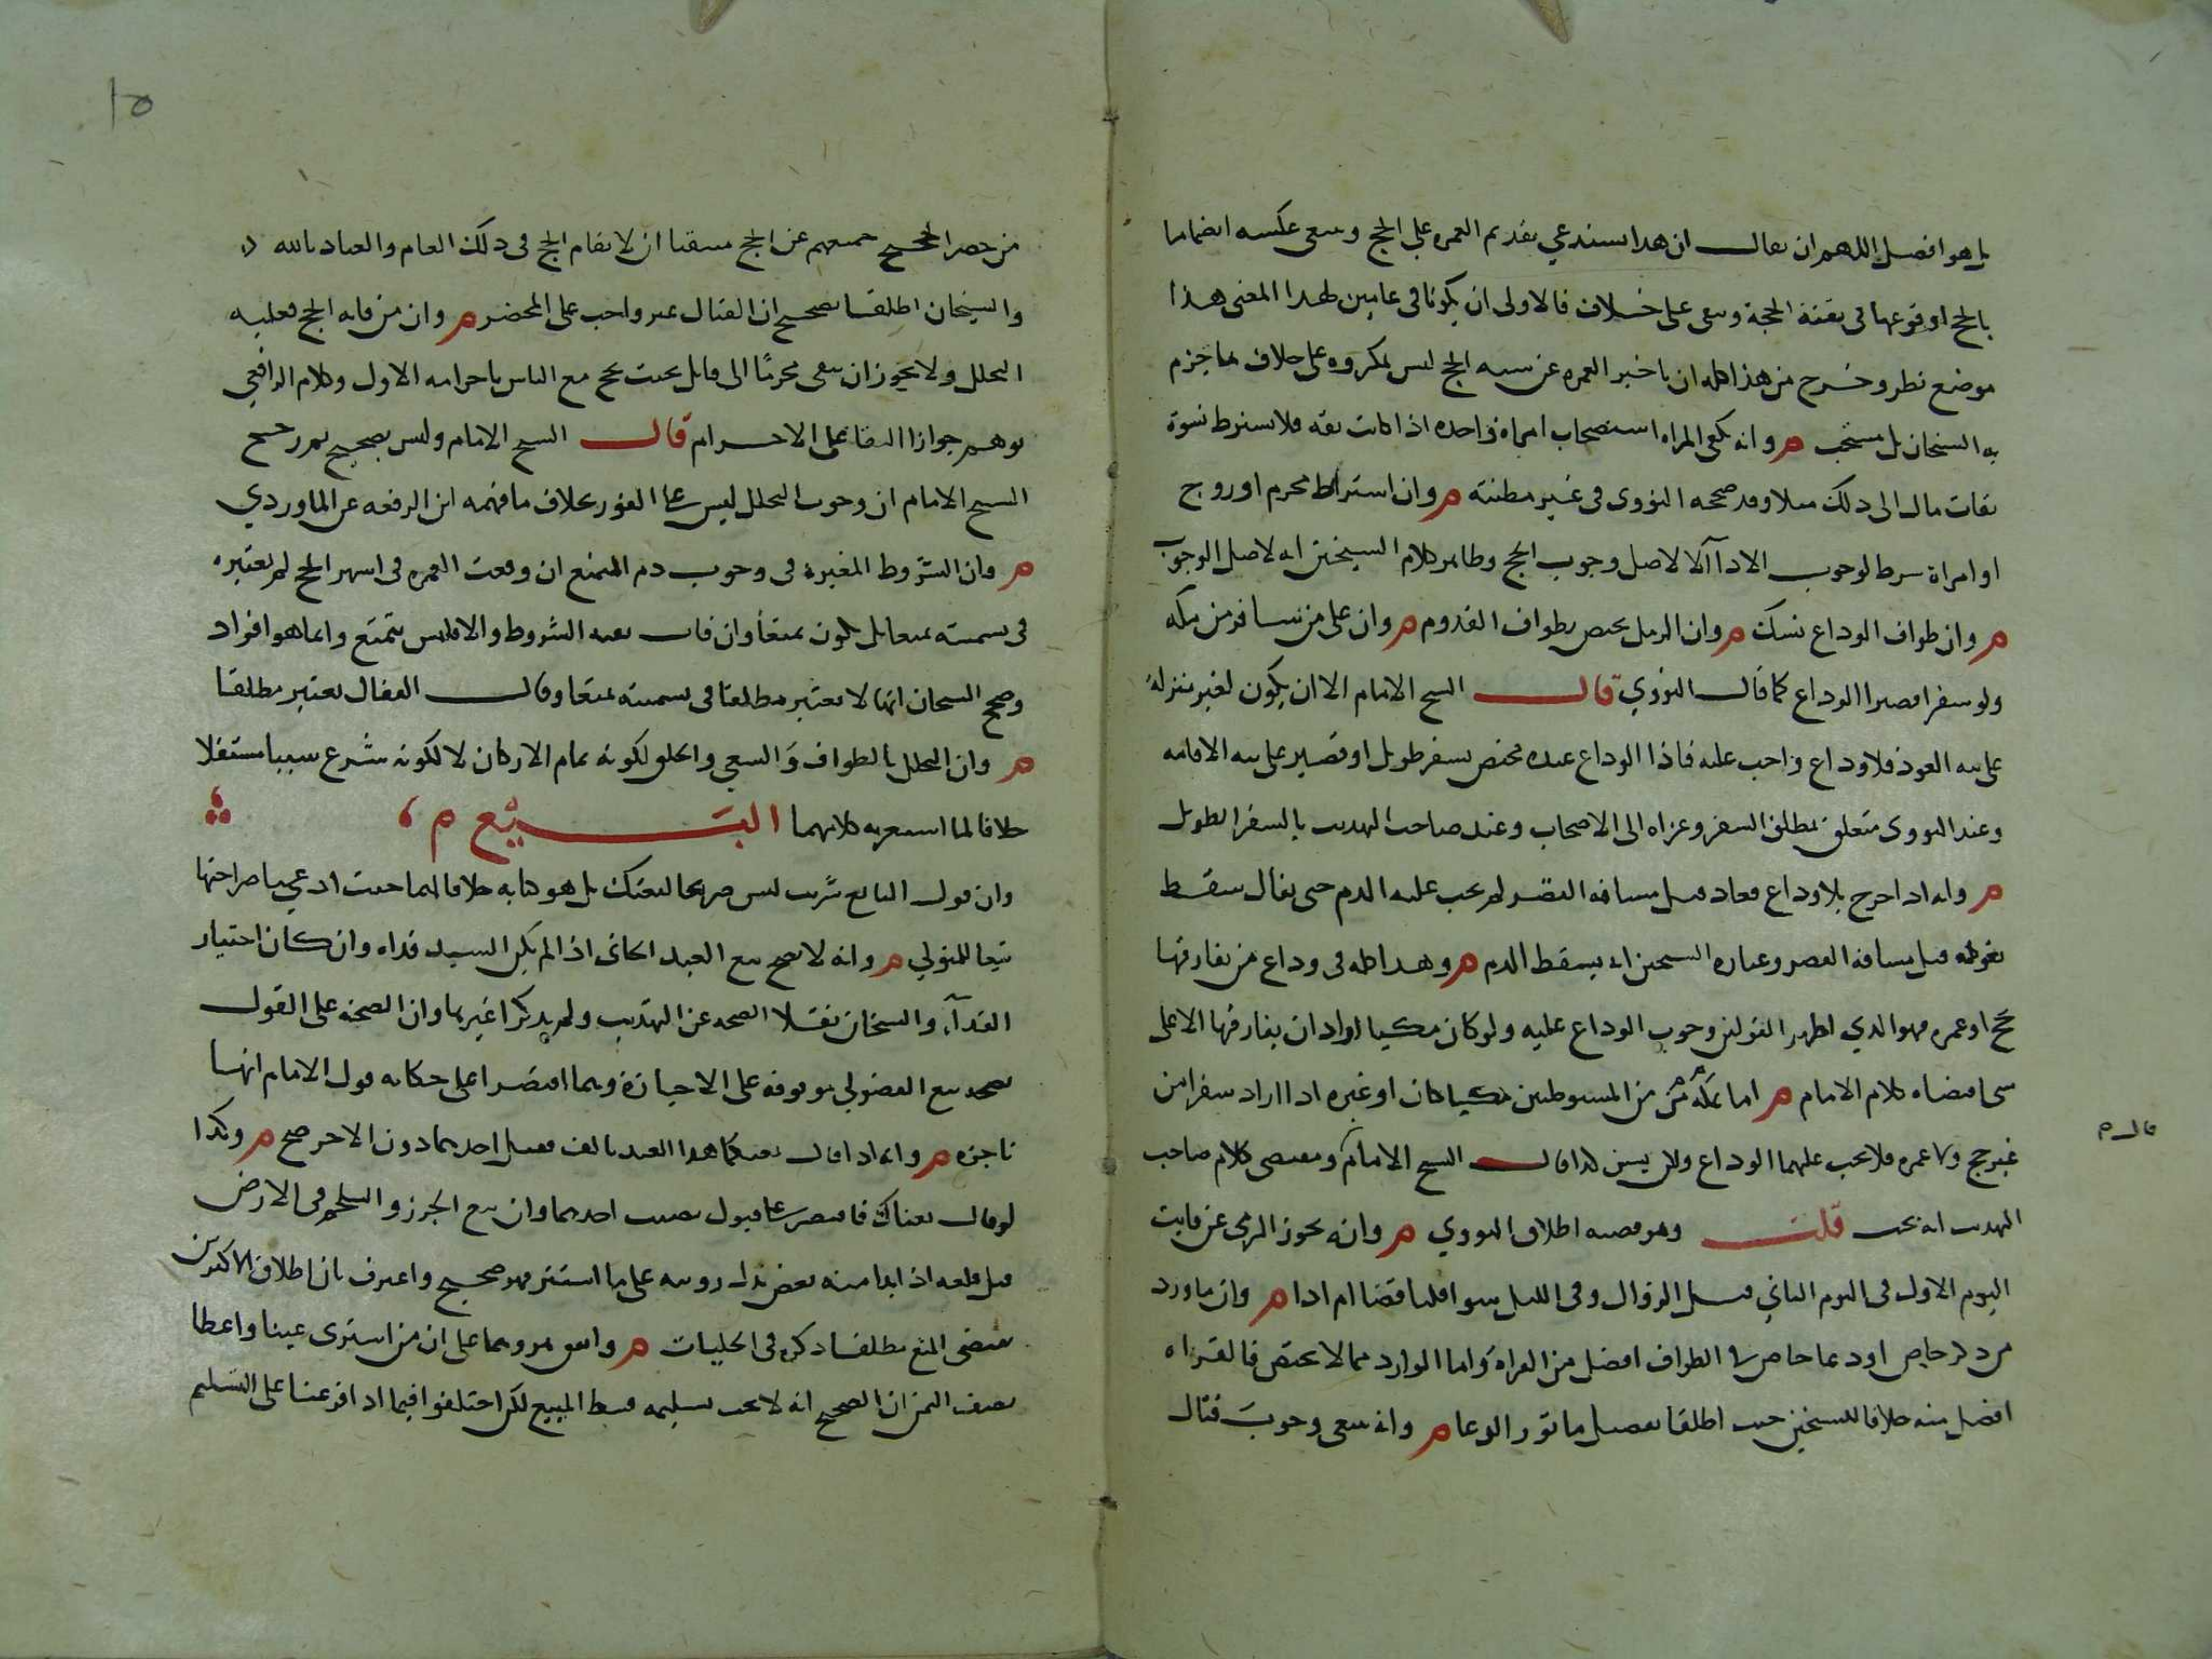 بل هو افضل اللهم ان يقال ان هذا يستدعي تقديم العمره على الحج وينبغي عكسه اهتماما
بالحج او وقوعها في بقية الحجة وينبغي على خلاف فالاولى ان يكونا في عامين لهذا المعنى هذا
موضع نظر وخرج من هذا كله ان تاخير العمره عن سنه الحج ليس بمكروه على خلاف ما جزم
به الشيخان بل مستحب م وانه يكفي المراه استصحاب امراة واحده اذا كانت ثقه فلا يشترط نسوة
ثقات مال الى ذلك ميلا وقد صححه النووى في غير مظنته م وان اشتراط محرم او زوج
او امراة شرط لوجوب الادآ لا لاصل وجوب الحج وظاهر كلام الشيخين انه لاصل الوجوب
م وان طواف الوداع نسك م وان الرمل يختص بطواف القدوم م وان على من يسافر من مكه
ولو سفرا قصيرا الوداع كما قال النووي قال الشيخ الامام الا ان يكون لغير منزله
على نيه العود فلا وداع واجب عليه فاذا الوداع عنده مختص بسفر طويل او قصير على نيه الاقامه
وعند النووى متعلق بمطلق السفر وعزاه الى الاصحاب وعند صاحب التهذيب بالسفر الطويل
م وانه اذا خرج بلا وداع فعاد قبل مسافه القصر لم يجب عليه الدم حتى يقال سقط
بعوده قبل مسافة القصر وعباره الشيخين انه يسقط الدم م وهذا كله في وداع من يفارقها
بحج او عمره فهو الذي اظهر القولين وجوب الوداع عليه ولو كان مكيا اراد ان يفارقها الا على
شى اقتضاه كلام الامام م اما بمكة من المستوطنين مكيا كان او غيره اذا اراد سفرا من
غير حج ولا عمره فلا يجب عليهما الوداع ولكن يسن كذا قال الشيخ الامام ومقتضى كلام صاحب
قال م
التهذيب انه يجب قلت وهو قضيه اطلاق النووي م وانه يجوز الرمي عن فايت
اليوم الاول في اليوم الثاني قبل الزوال وفي الليل سوا قلنا قضا ام ادا م وان ما ورد
من ذكر خاص او دعا خاص في الطواف افضل من القراه واما الوارد مما لا يختص فالقراه
افضل منه خلافا للشيخين حيث اطلقا تفضيل ماثور الدعا م وانه ينبغي وجوب قتال
١٥
من حصر الحجيج جميعهم عن الحج متيقنا ان لا يقام الحج في ذلك العام والعياذ بالله
والشيخان اطلقا تصحيح ان القتال غير واجب على المحصر م وان من فاته الحج فعليه
التحلل ولا يجوز ان يبقى محرمًا الى قابل بحيث يحج مع الناس باحرامه الاول وكلام الرافعي
يوهم جواز البقا على الاحرام قال الشيخ الامام وليس بصحيح ثم رجح
الشيخ الامام ان وجوب التحلل ليس على الفور بخلاف ما فهمه ابن الرفعه عن الماوردي
م وان الشروط المعتبرة في وجوب دم التمتع ان وقعت العمره في اشهر الحج لم تعتبر
في تسميته متمتعا بل يكون متمتعا وان فات بقيه الشروط والا فليس بتمتع وانما هو افراد
وصحح الشيخان انها لا تعتبر مطلقا في تسميته متمتعا وقال القفال تعتبر مطلقا
م وان التحلل بالطواف وَالسعي والحلق لكونه تمام الاركان لا لكونه شرع سببا مستقلا
خلافا لما اشعر به كلامهما البَيْع م
وان قول البايع شريت ليس صريحا كبعتك بل هو كنايه خلافا لهما حيث ادعي صراحتها
تبعا للمتولي م وانه لا يصح بيع العبد الجاني اذا لم يكن السيد فداه وان كان اختيار
الفدآء والشيخان نقلا الصحه عن التهذيب ولم يذكرا غيرها وان الصحه على القول
بصحه بيع الفضولي موقوفه على الاجازة وهما اقتصرا على حكايه قول الامام انها
ناجزه م وانه اذا قال بعتكما هذا العبد بالف فقبل احدهما دون الاخر صح م وكذا
لو قال بعتاك فاقتصر على قبول نصيب احدهما وان بيع الجزر والسلجم في الارض
قبل قلعه اذا ابدا منه بعض تدل رويته على ما استتر فهو صحيح واعترف بان اطلاق الاكثرين
يقتضى المنع مطلقا ذكره في الحلبيات م واتفق هو وهما على ان من اشترى عينا واعطا
نصف الثمن ان الصحيح انه لا يجب تسليمه قسط المبيع لكن اختلفوا فيما اذا فرعنا على التسليم